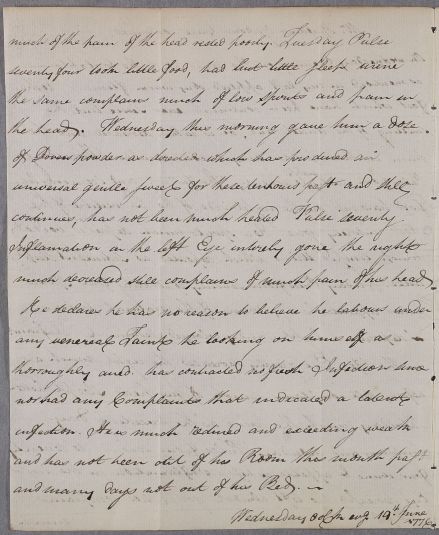 much of the pain of the head rested poorly. Tuesday Pulse
seventy four took little food, had but little sleep urine
the same complains much of low spirits and pain in
the head. Wednesday this morning gave him a dose
of Dovers powder as directed which has produced an
universal gentle sweat for these ten hours past and still
continues, has not been much heated Pulse seventy.
Inflamation in the left Eye intirely gone the right
much decreased still complains of much pain of his head
He declares he has no reason to believe he labours under
any venereal Taint he looking on himself as
thoroughly cured. has contracted no fresh Infection since
nor had any Complaints that indicated a latent
infection. He is much reduced and exceeding weak
and has not been out of his Room this month past
and many days not out of his Bed. —
Wednesday 8 o'clk evg 19th June